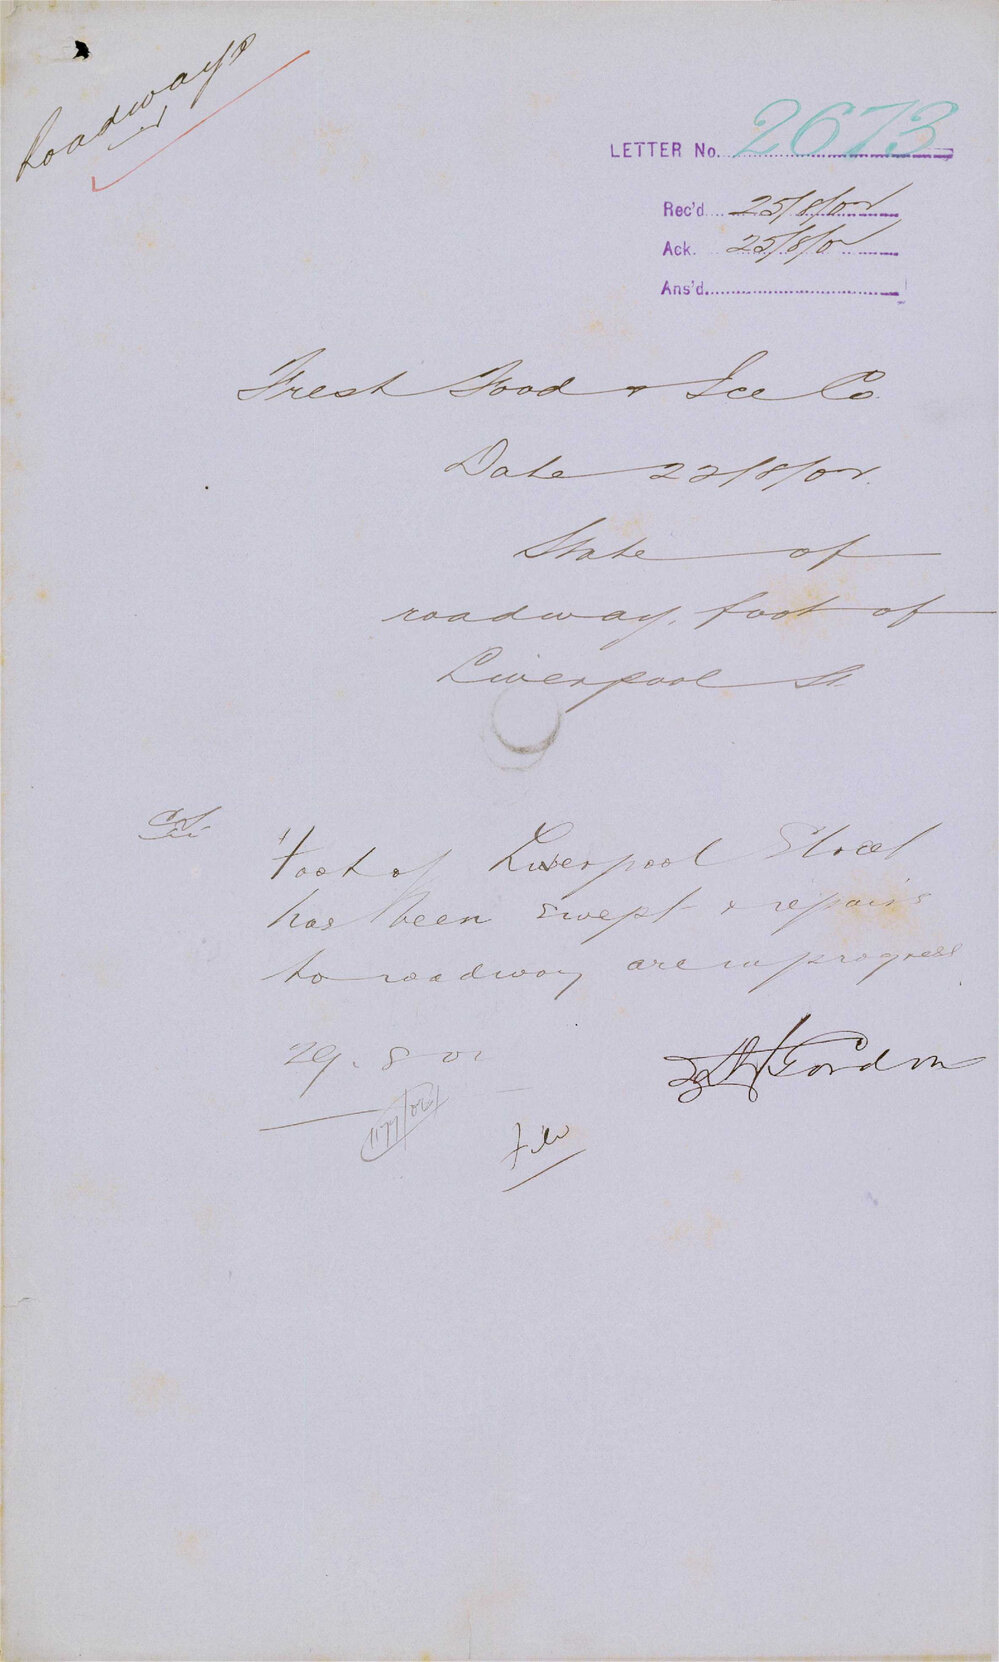 Roadways
LETTER No. 2673
Rec'd 25/8/02
Ack. 25/8/02
Ans'd
Fresh Food & Ice Co.
Date 22/8/02.
State of
roadway, foot of
Liverpool St.
Foot of Liverpool Street
has been swept & repairs
to roadway are in progress
29. 8 02
Gordon
File